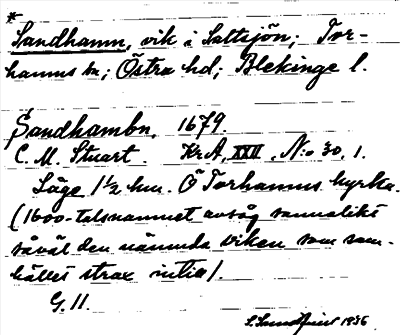 *
Sandhamn, vik i Saltsjön; Tor-
hamns sn; Östra hd; Blekinge l.
Sandhambn. 1679.
C. M. Stuart. KrA, XXII, N:o 30, 1.
Läge 1½ km. Ö Torhamns kyrka.
(1600-talsnamnet avsåg sannolikt
såväl den nämnda viken som sam-
hället strax intill).
G. 11.
S. Sundquist 1936